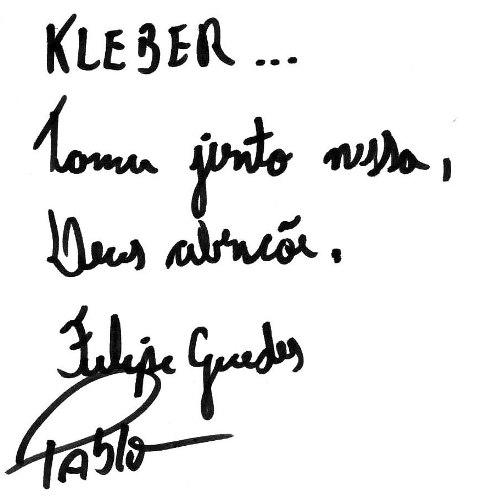 KLEBER...
Tamu junto nessa,
Deus abençõe.
Felipe Guedes
Pablo